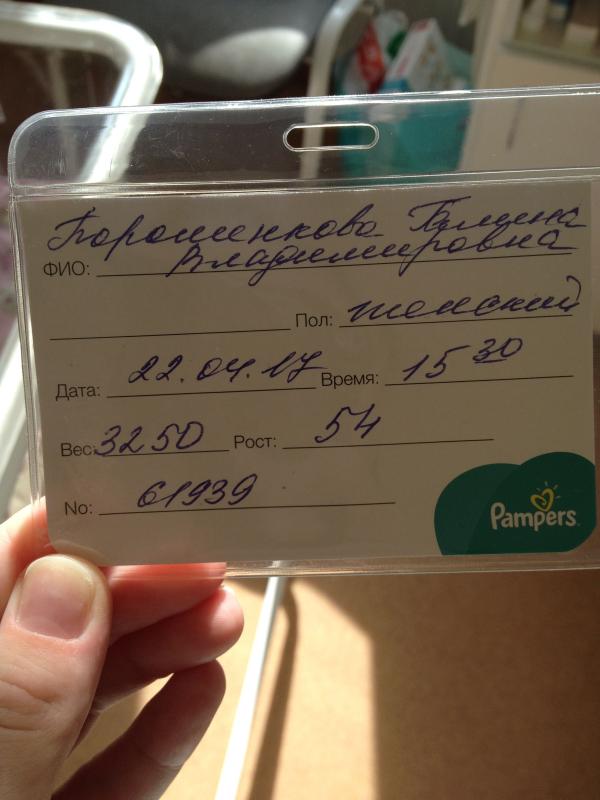 Порошенкова Галина
ФИО: Владимировна
Пол: женский
Дата: 22.04.17 Время: 15 30
Вес: 3250 Рост: 54
No: 61939
Pampers